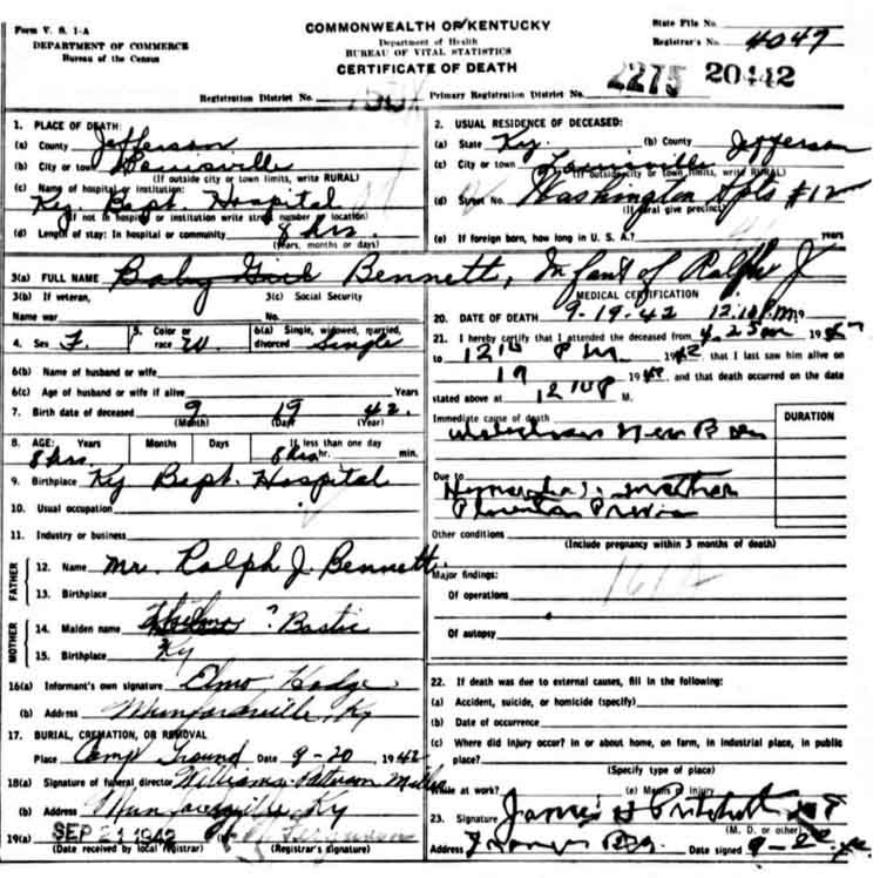 Form V. S. 1-A
DEPARTMENT OF COMMERCE
Bureau of the Census
COMMONWEALTH OF KENTUCKY
Department of Health
BUREAU OF VITAL STATISTICS
CERTIFICATE OF DEATH
State File No.
Registrar's No. 4049
2275 20442
Registration District No. Primary Registration District No.
1. PLACE OF DEATH:
(a) County Jefferson
(b) City or town Louisville
(If outside city or town limits, write RURAL)
(c) Name of hospital or institution:
Ky. Bapt. Hospital
(If not in hospital or institution write street number or location)
(d) Length of stay: In hospital or community 8 hrs.
(Years, months or days)
2. USUAL RESIDENCE OF DECEASED:
(a) State Ky. (b) County Jefferson
(c) City or town Louisville
(If outside city or town limits, write RURAL)
(d) Street No. Washington Apts #12
(If rural give precinct)
(e) If foreign born, how long in U. S. A.? years
3(a) FULL NAME Baby Girl Bennett, Infant of Ralph J
3(b) If veteran,
Name war
3(c) Social Security
No.
4. Sex F. 5. Color or race W 6(a) Single, widowed, married, divorced Single
6(b) Name of husband or wife
6(c) Age of husband or wife if alive Years
7. Birth date of deceased 9 19 42.
(Month) (Day) (Year)
8. AGE: Years Months Days If less than one day
8 hrs. 8 hrs hr. min.
9. Birthplace Ky Bapt. Hospital
10. Usual occupation
11. Industry or business
FATHER
12. Name Mr. Ralph J. Bennett
13. Birthplace
MOTHER
14. Maiden name Thelma ? Bastic
15. Birthplace Ky
16(a) Informant's own signature Elmo Hodge
(b) Address Munfordville, Ky
17. BURIAL, CREMATION, OR REMOVAL
Place Camp Ground Date 9-20, 1942
18(a) Signature of funeral director Williams-Patterson Miller
(b) Address Munfordville, Ky
19(a) SEP 21 1942 (b)
(Date received by local registrar) (Registrar's signature)
MEDICAL CERTIFICATION
20. DATE OF DEATH 9-19-42 12:10 P.M.
21. I hereby certify that I attended the deceased from 4.25 am 19
to 12 10 PM 1942, that I last saw him alive on
19 19 and that death occurred on the date
stated above at 12 10 P M.
Immediate cause of death DURATION
New Born
Due to
mother
Placenta Previa
Other conditions
(Include pregnancy within 3 months of death)
Major findings:
Of operations
Of autopsy
22. If death was due to external causes, fill in the following:
(a) Accident, suicide, or homicide (specify)
(b) Date of occurrence
(c) Where did injury occur? In or about home, on farm, in industrial place, in public
place?
(Specify type of place)
While at work? (e) Means of injury
23. Signature James H Pritchett
(M. D. or other)
Address Date signed 9-